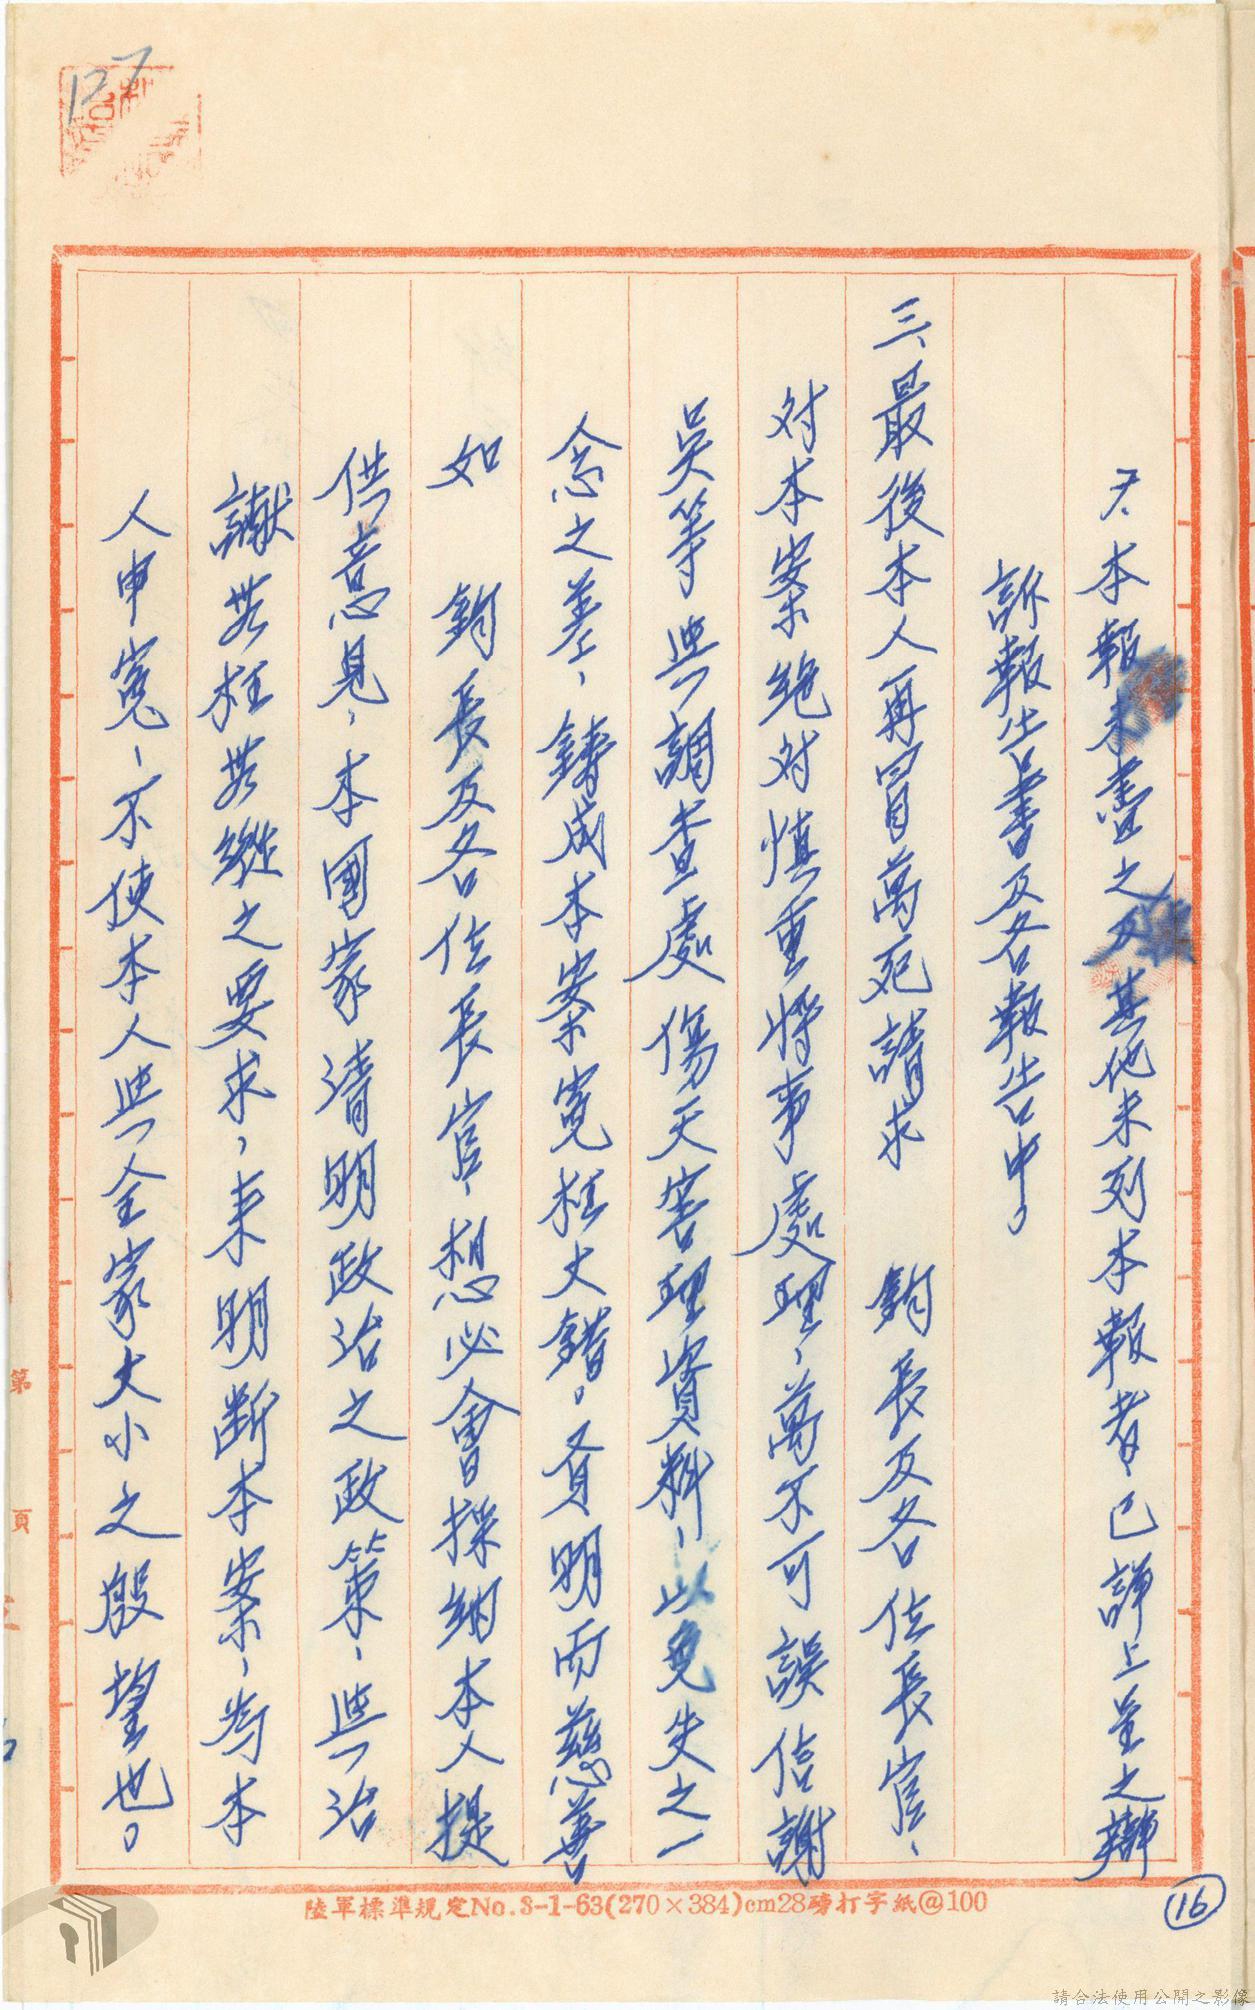 127
7.本報未書之及其他未列本報者,已詳上呈之辯
訴報告書及各報告中。
三、最後本人再冒萬死請求 鈞長及各位長官、
对本案絕对慎重將事處理,萬不可誤信謝
吳等與調查處傷天害理資料,以免失之一
念之差,鑄成本案寃枉大錯。賢明而慈善
如 鈞長及各位長官,想必會採納本人提
供意見,本國家清明政治之政策,與治
讞毋枉毋縱之要求,来明断本案,为本
人申寃,不使本人與全家大小之殷望也。
陸軍標準規定No.3-1-63(270×384)cm28磅打字紙@100
16
第 頁
請合法使用公開之影像